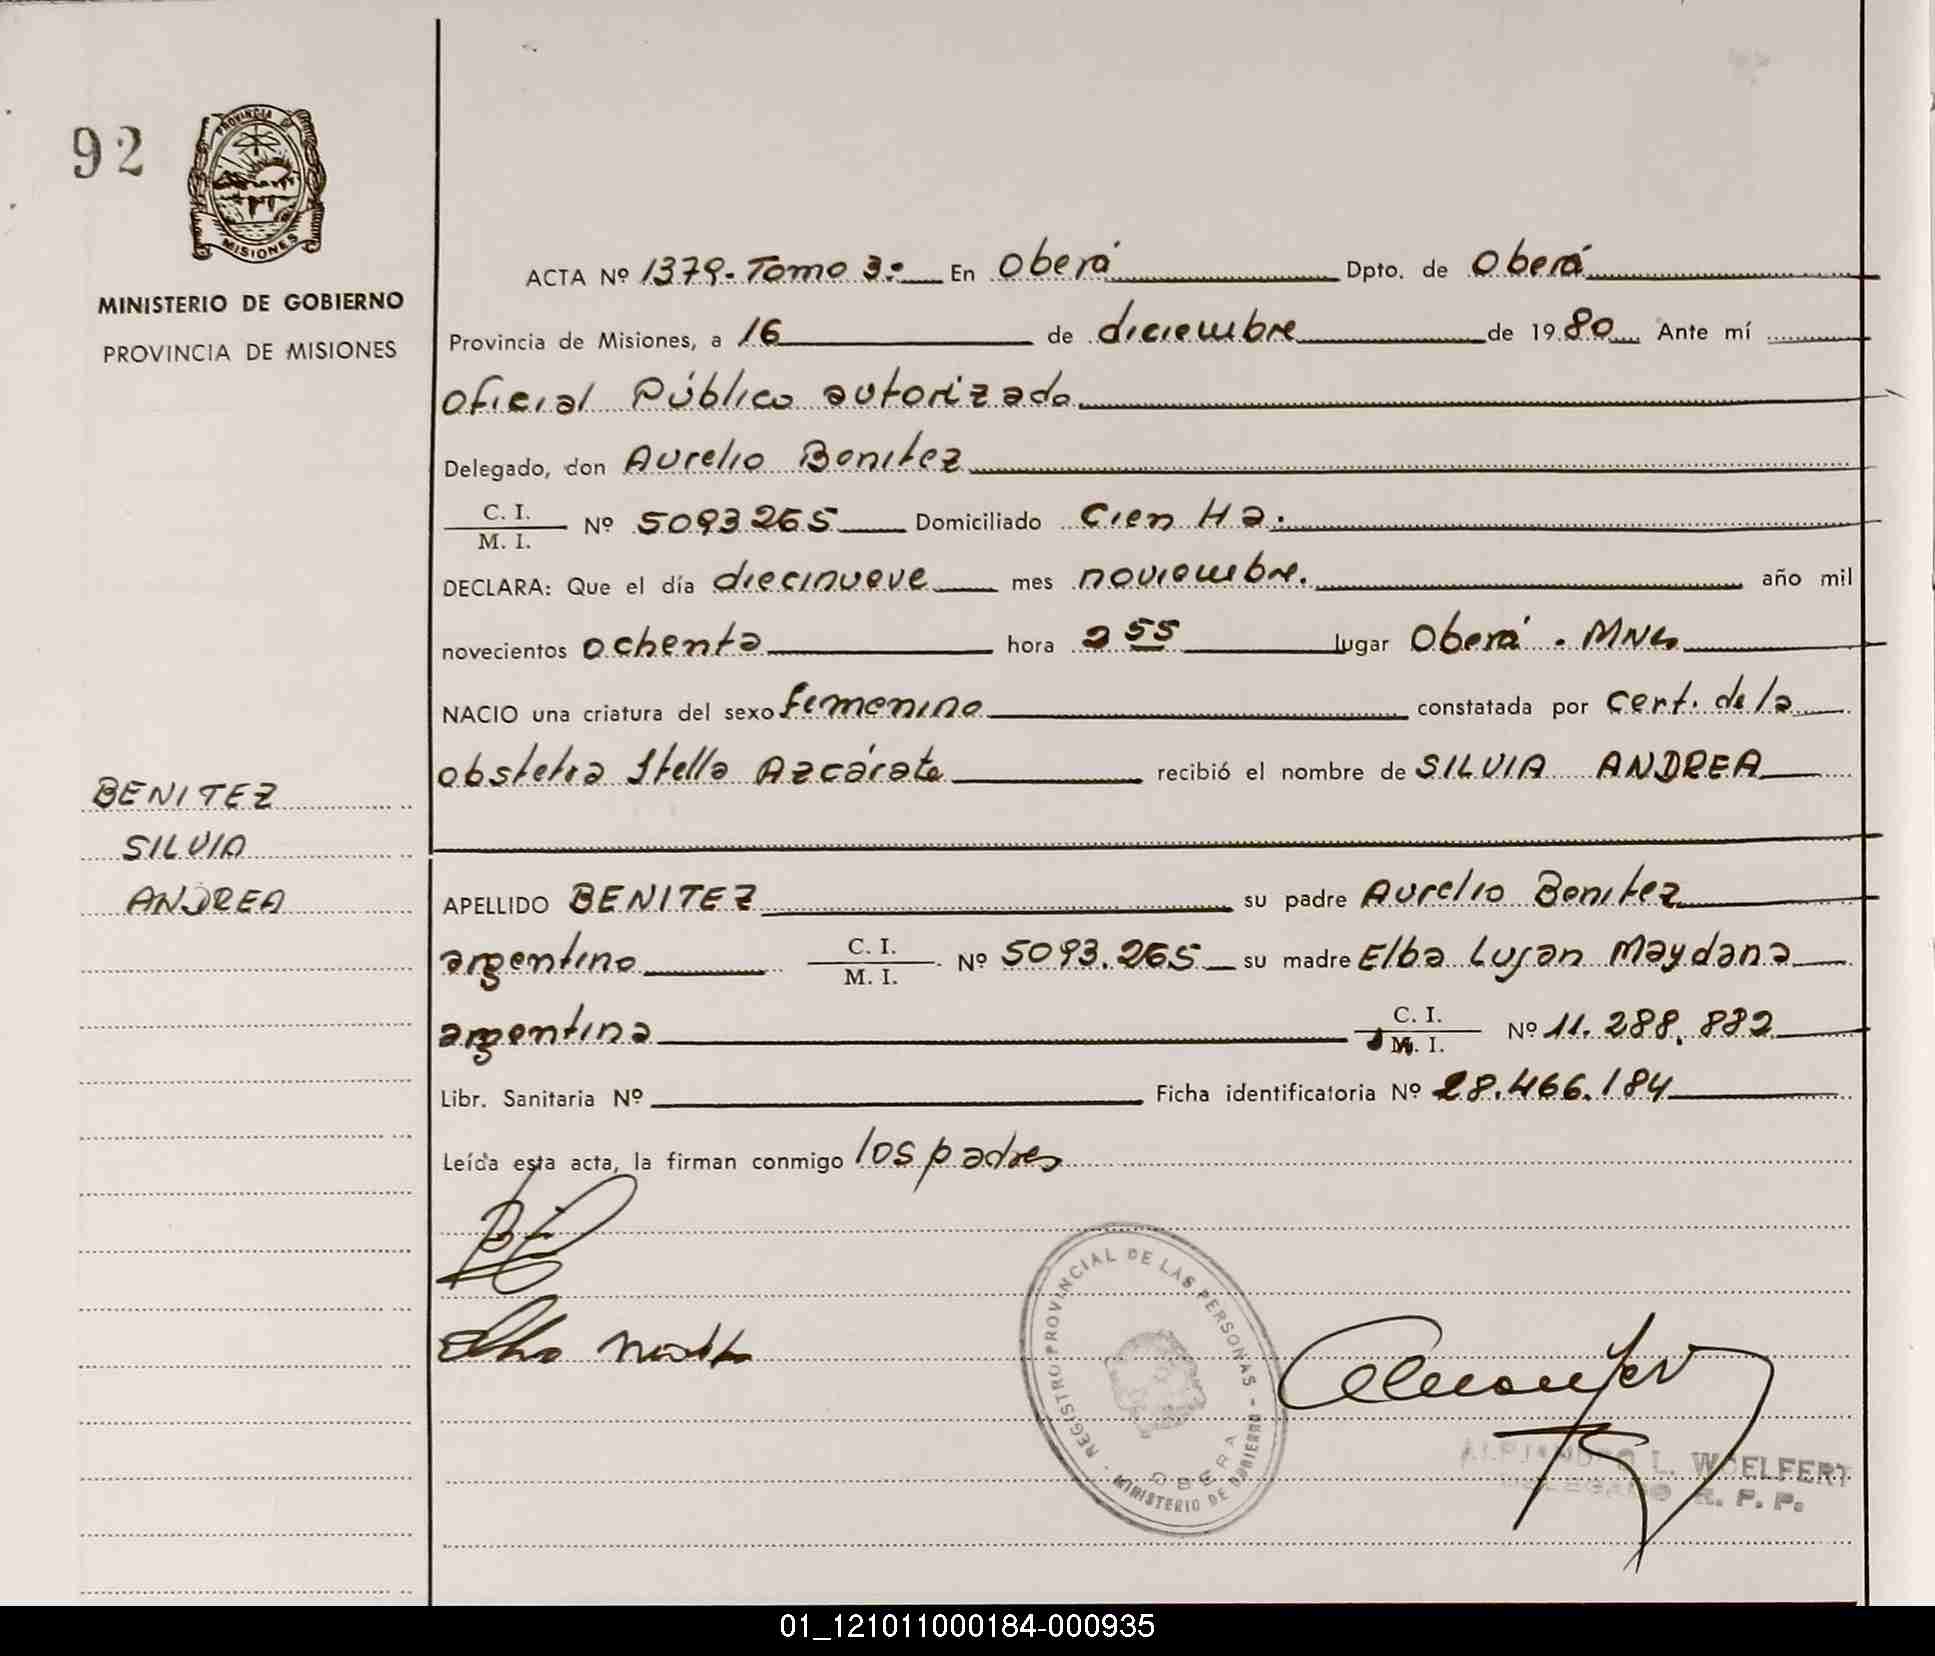 92
PROVINCIA DE
MISIONES
MINISTERIO DE GOBIERNO
PROVINCIA DE MISIONES
BENITEZ
SILVIA
ANDREA
ACTA Nº 1379. Tomo 3º En Oberá Dpto. de Oberá
Provincia de Misiones, a 16 de diciembre de 1980 Ante mí
Oficial Público autorizado
Delegado, don Aurelio Benitez
C. I.
M. I.
Nº 5093265 Domiciliado Cien Ha.
DECLARA: Que el día diecinueve mes noviembre. año mil
novecientos ochenta hora 2 55 lugar Oberá . MNes
NACIO una criatura del sexo femenino constatada por cert. de la
obstetra Stella Azcárate recibió el nombre de SILVIA ANDREA
APELLIDO BENITEZ su padre Aurelio Benitez
argentino C. I. M. I. Nº 5093.265 su madre Elba Lujan Maydana
argentina C. I. M. I. Nº 11.288.882
Libr. Sanitaria Nº Ficha identificatoria Nº 28.466.184
Leída esta acta, la firman conmigo los padres
REGISTRO PROVINCIAL DE LAS PERSONAS - MINISTERIO DE GOBIERNO -
OBERA
L. WOELFERT
DELEGADO R. P. P.
01_121011000184-000935